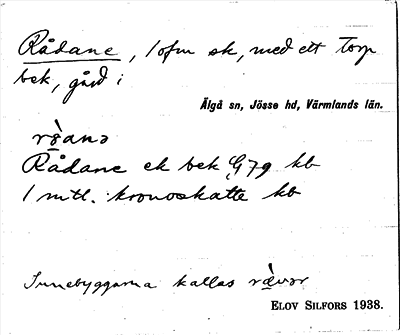 Rådane, 1 ofm sk, med ett torp
bek, gård i
Älgå sn, Jösse hd, Värmlands län.
Rådane ek bek G 79 kb
1 mtl. kronoskatte kb
Innebyggarna kallas
ELOV SILFORS 1938.